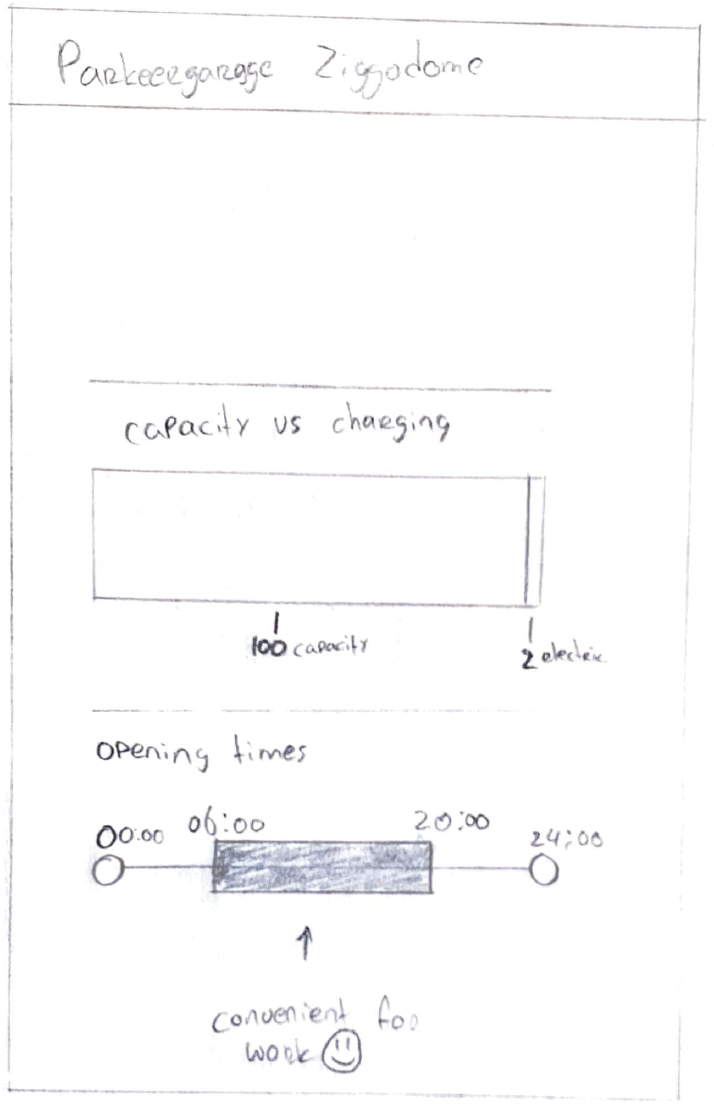 Parkeergarage Ziggodome
capacity vs charging
100 capacity
2 electric
opening times
00:00 06:00 20:00 24:00
convenient for
work